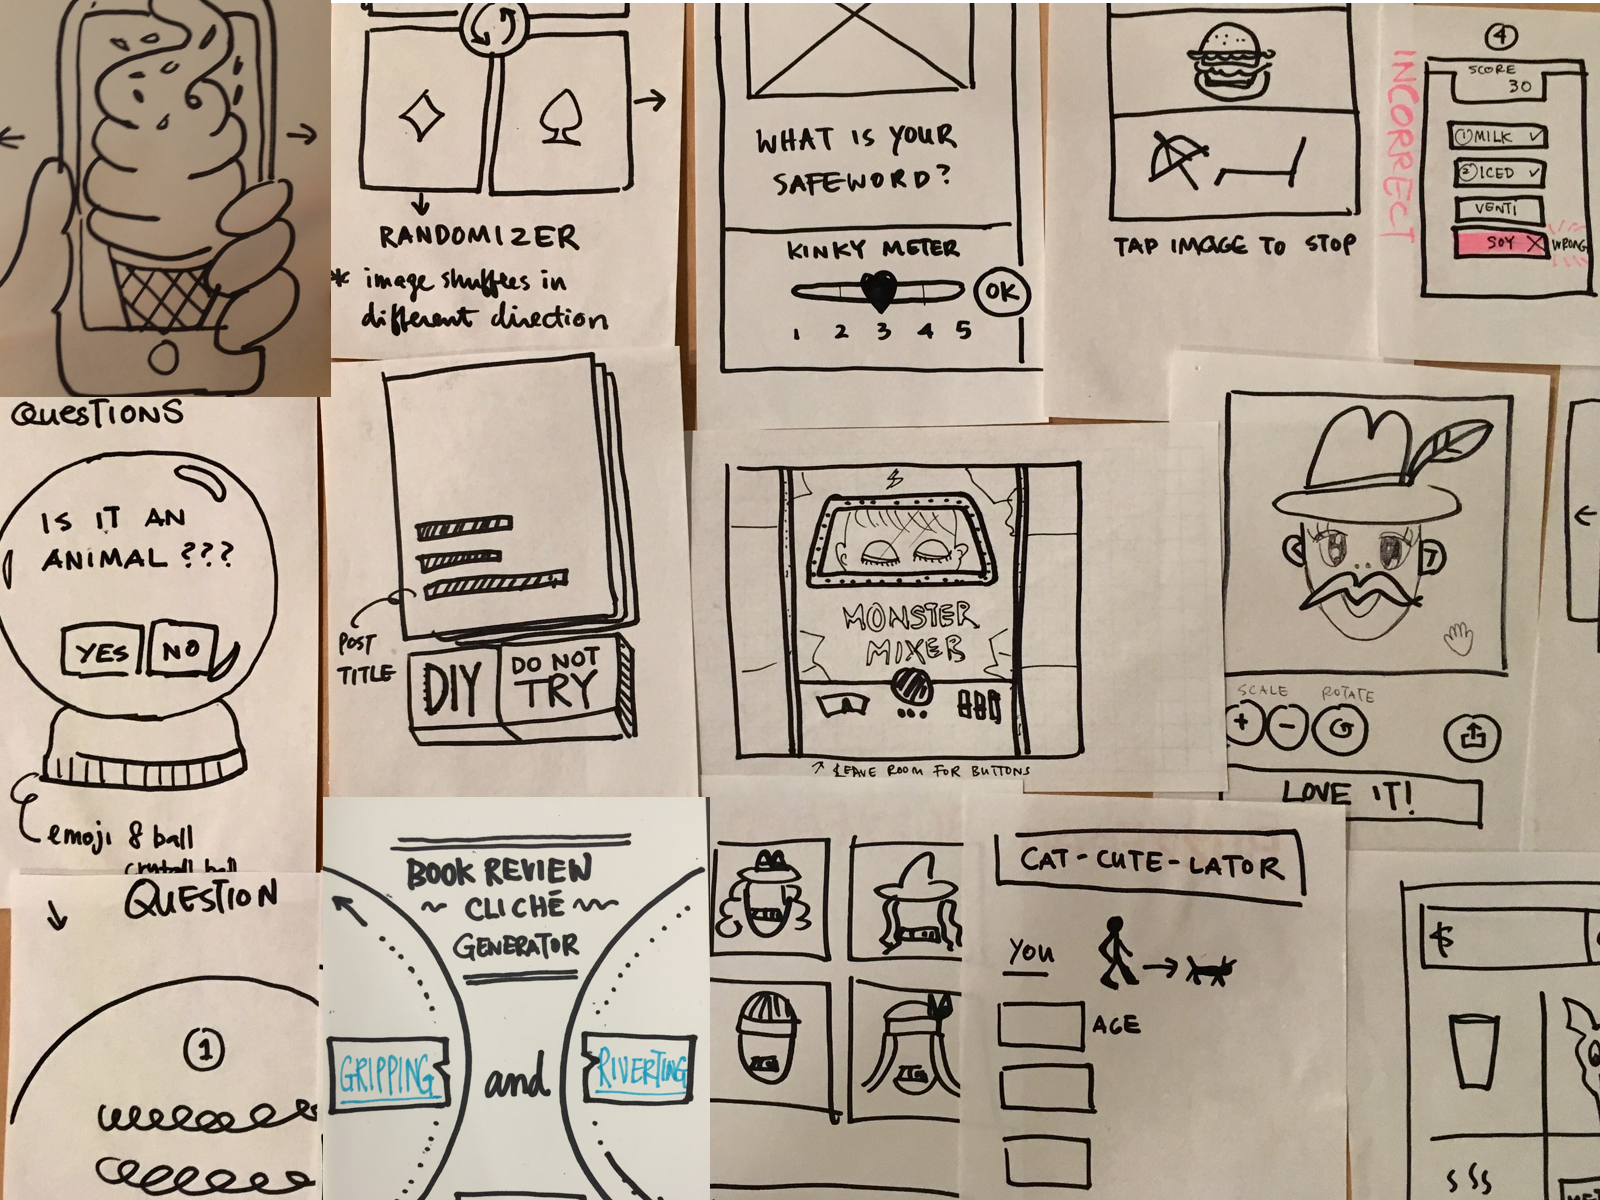 RANDOMIZER
* image shuffles in
different direction
WHAT IS YOUR
SAFEWORD?
KINKY METER
OK
1 2 3 4 5
TAP IMAGE TO STOP
INCORRECT
4
SCORE
30
1 MILK ✓
2 ICED ✓
VENTI
SOY X WRONG
QUESTIONS
IS IT AN
ANIMAL ???
YES NO
emoji 8 ball
crystall ball
POST
TITLE
DIY
DO NOT
TRY
MONSTER
MIXER
LEAVE ROOM FOR BUTTONS
SCALE ROTATE
+ -
LOVE IT!
QUESTION
1
BOOK REVIEW
~ CLICHÉ ~
GENERATOR
GRIPPING and RIVERTING
CAT-CUTE-LATOR
YOU
AGE
$